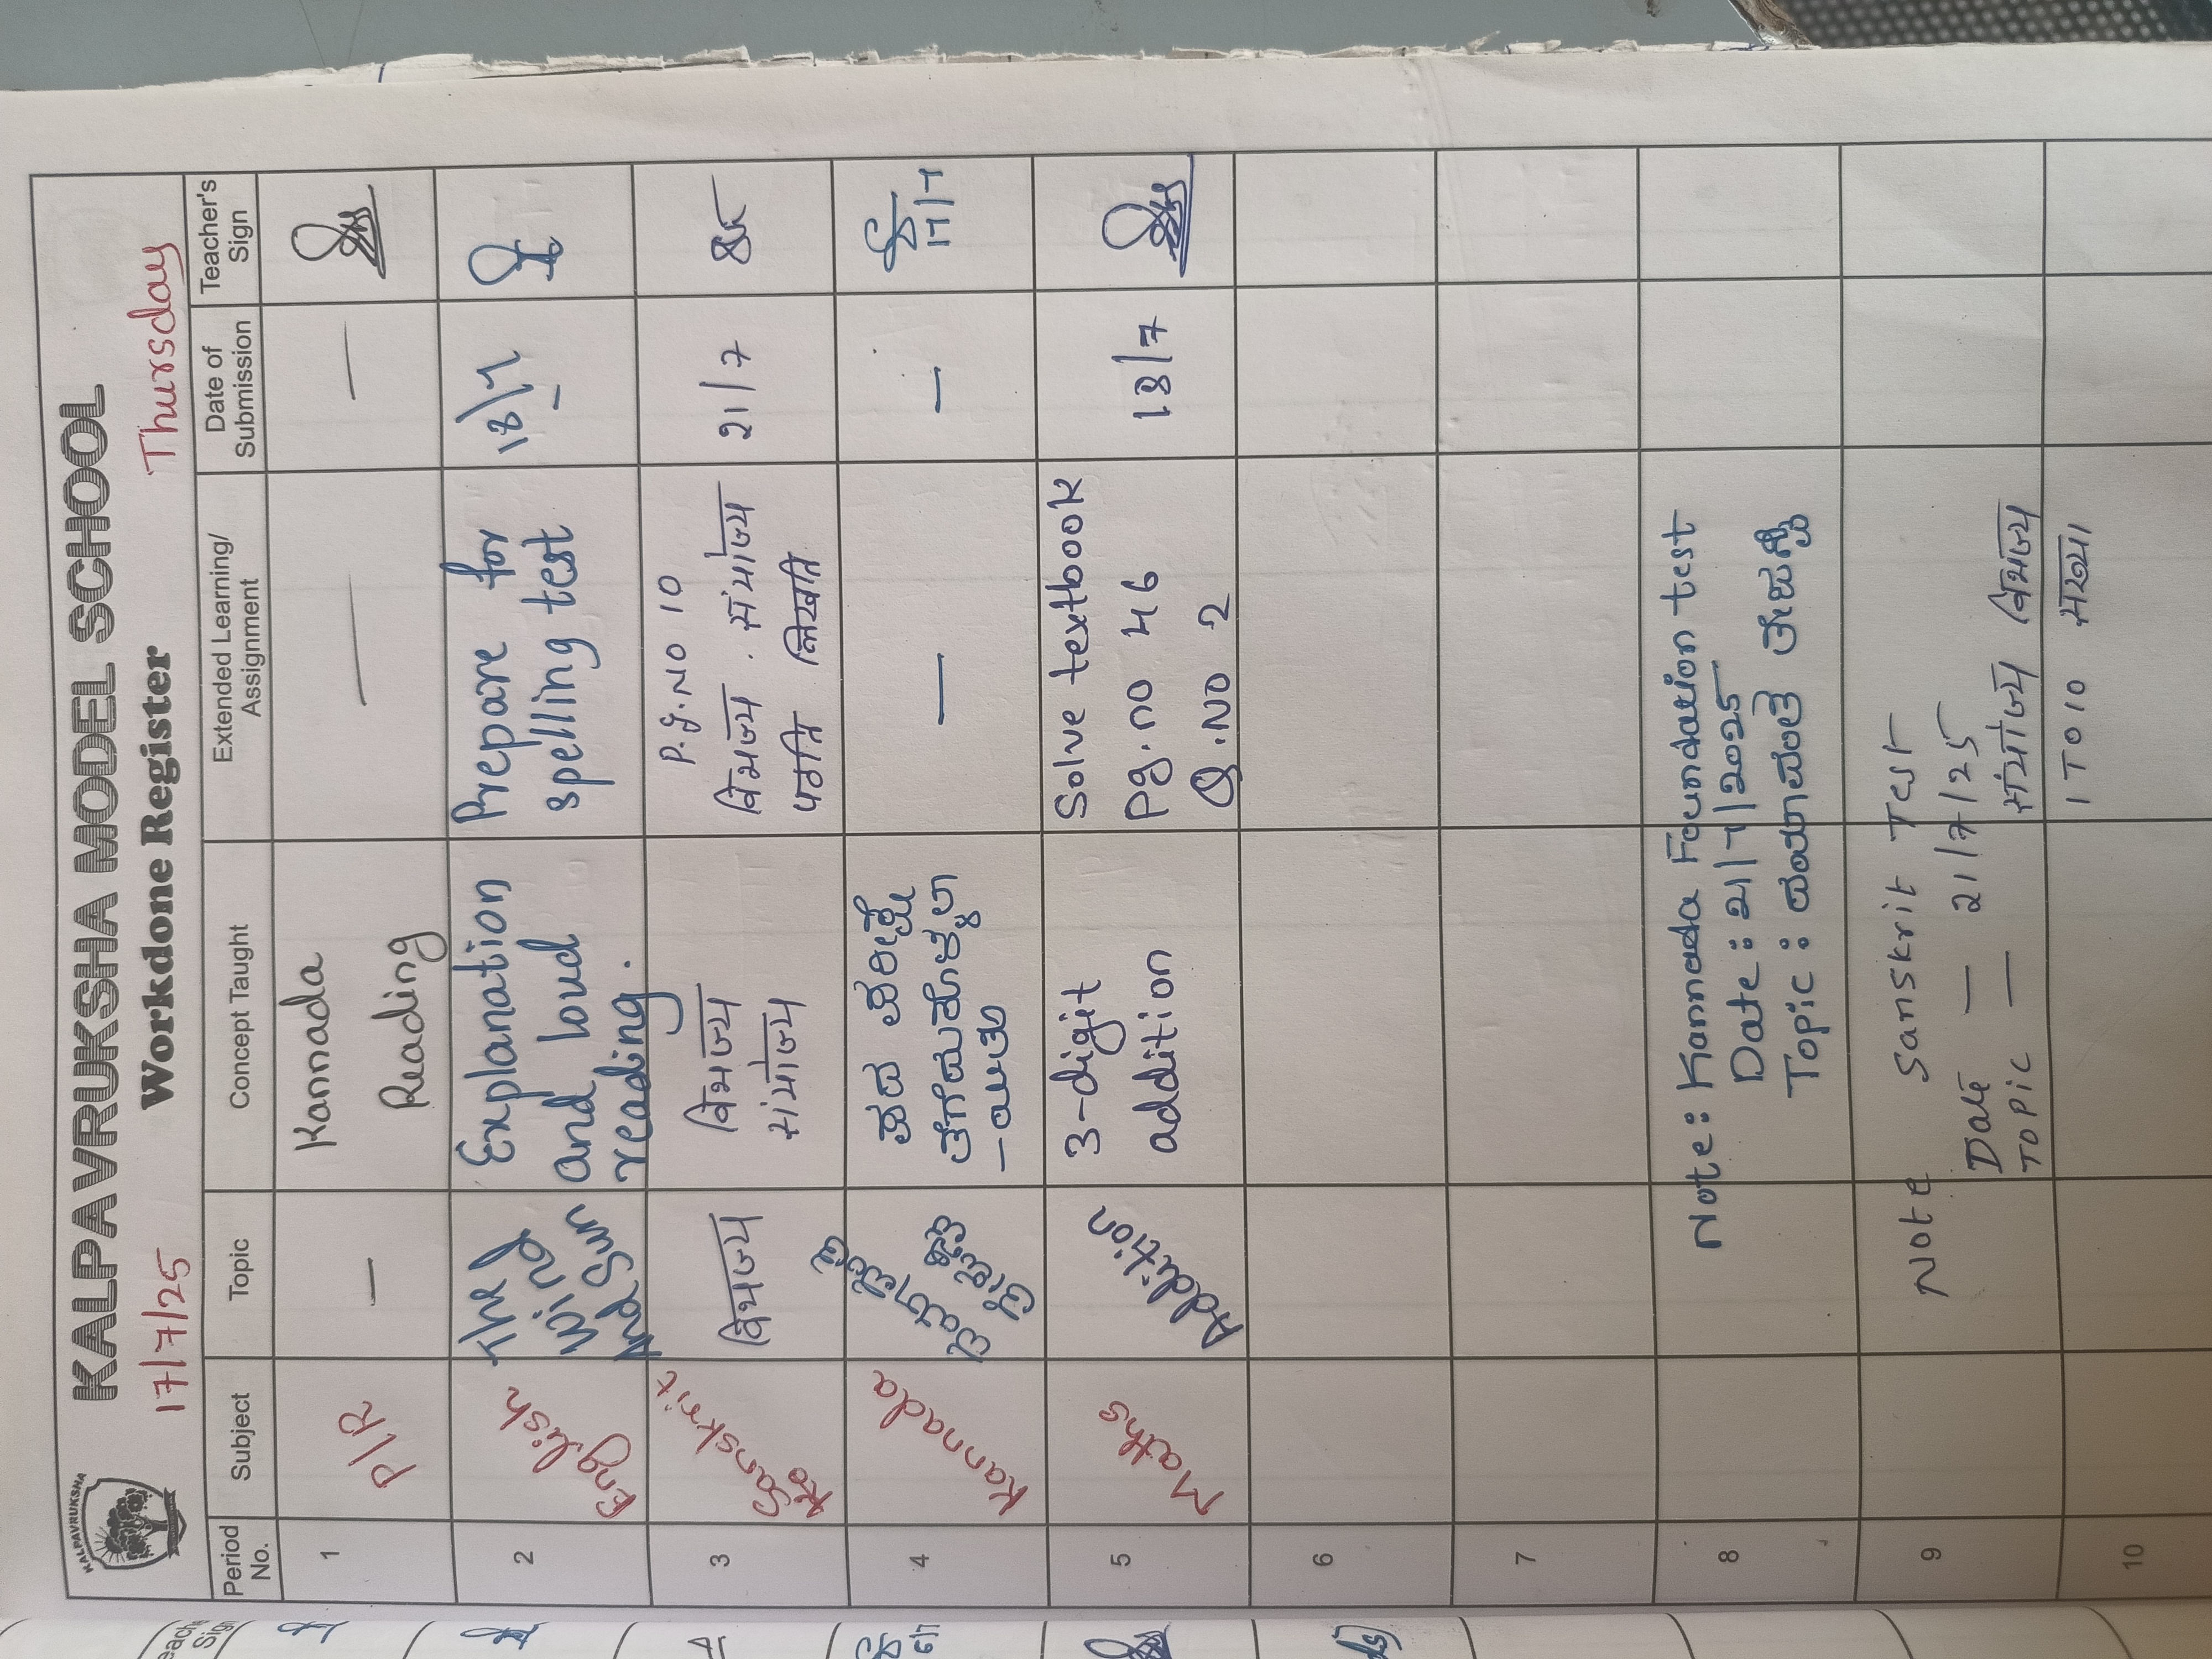 KALPAVRUKSHA
KALPAVRUKSHA MODEL SCHOOL
17/7/25 Workdone Register Thursday
Period No. Subject Topic Concept Taught Extended Learning/ Assignment Date of Submission Teacher's Sign
1 P/R — Kannada Reading — —
2 English The Wind And Sun Explanation and loud reading. Prepare for spelling test 18/7
3 Sanskrit विभज्य विभज्य संयोज्य P.g.NO 10 विभज्य . संयोज्य पठति लिखति 21/7
4 Kannada ಪದ — — 17/7
5 Maths Addition 3-digit addition Solve textbook Pg.no 46 Q.NO 2 18/7
6
7
8 Note: Kannada Foundation test
Date: 21/7/2025
Topic:
9 Note Sanskrit Test
Date — 21/7/25
TOPIC — संयोज्य विभज्य
10 1 TO 10 संख्या